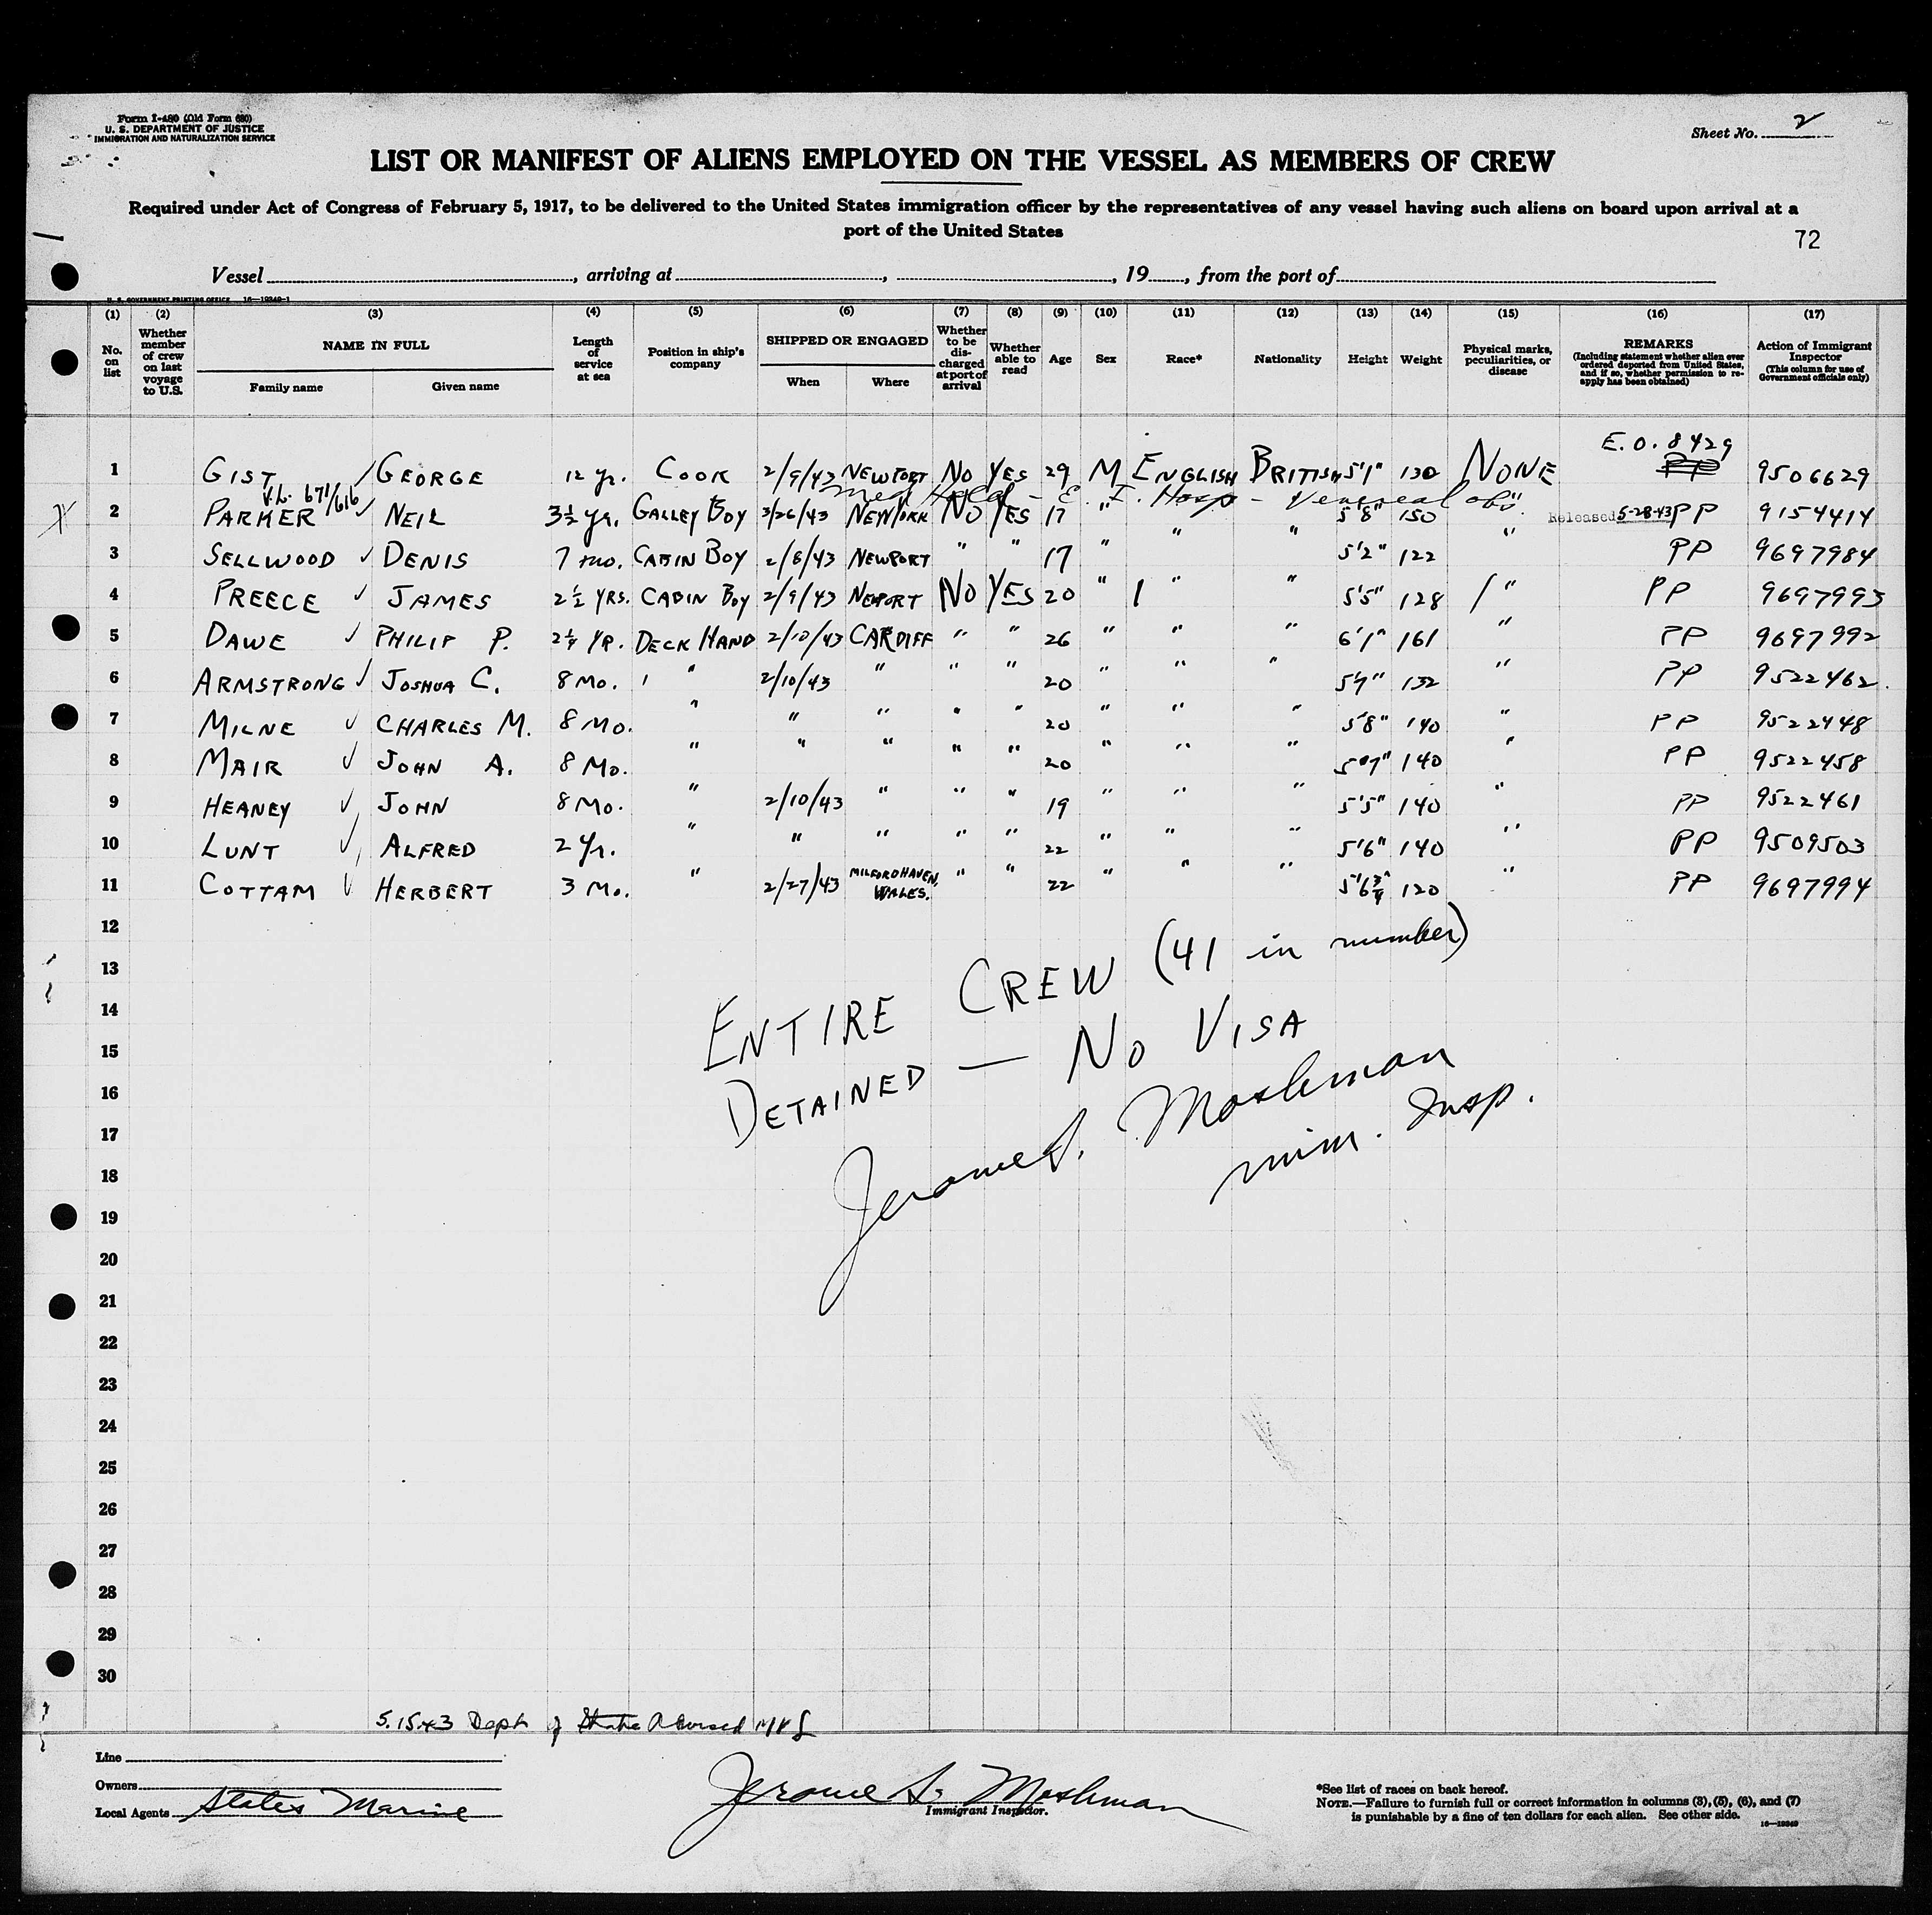 Form I-480 (Old Form 680)
U. S. DEPARTMENT OF JUSTICE
IMMIGRATION AND NATURALIZATION SERVICE
Sheet No. 2
LIST OR MANIFEST OF ALIENS EMPLOYED ON THE VESSEL AS MEMBERS OF CREW
Required under Act of Congress of February 5, 1917, to be delivered to the United States immigration officer by the representatives of any vessel having such aliens on board upon arrival at a
port of the United States
72
Vessel, arriving at, , 19, from the port of
U. S. GOVERNMENT PRINTING OFFICE 16—19349-1
(1) (2) (3) (4) (5) (6) (7) (8) (9) (10) (11) (12) (13) (14) (15) (16) (17)
No. on list
Whether member of crew on last voyage to U.S.
NAME IN FULL
Family name Given name
Length of service at sea
Position in ship's company
SHIPPED OR ENGAGED
When Where
Whether to be discharged at port of arrival
Whether able to read
Age
Sex
Race*
Nationality
Height
Weight
Physical marks, peculiarities, or disease
REMARKS
(Including statement whether alien ever ordered deported from United States, and if so, whether permission to reapply has been obtained)
Action of Immigrant Inspector
(This column for use of Government officials only)
E.O. 8429
1 GIST / GEORGE 12 yr. COOK 2/9/43 NEWPORT NO YES 29 M ENGLISH BRITISH 5'1" 130 NONE PP 9506629
V.L. 671/616
Med Held - E. I. Hosp - Venereal obs.
2 PARKER ✓ NEIL 3½ yr. GALLEY BOY 3/26/43 NEW YORK NO YES 17 " " " 5'8" 150 " Released 5-28-43 PP 9154414
3 SELLWOOD ✓ DENIS 7 mo. CABIN BOY 2/8/43 NEWPORT " " 17 " " " 5'2" 122 " PP 9697984
4 PREECE ✓ JAMES 2½ YRS. CABIN BOY 2/9/43 NEWPORT NO YES 20 " " " 5'5" 128 " PP 9697993
5 DAWE ✓ PHILIP P. 2¼ YR. DECK HAND 2/10/43 CARDIFF " " 26 " " " 6'1" 161 " PP 9697992
6 ARMSTRONG ✓ JOSHUA C. 8 MO. " 2/10/43 " " " 20 " " " 5'7" 132 " PP 9522462
7 MILNE ✓ CHARLES M. 8 MO. " " " " " 20 " " " 5'8" 140 " PP 9522448
8 MAIR ✓ JOHN A. 8 MO. " " " " " 20 " " " 5'7" 140 " PP 9522458
9 HEANEY ✓ JOHN 8 MO. " 2/10/43 " " " 19 " " " 5'5" 140 " PP 9522461
10 LUNT ✓ ALFRED 2 Yr. " " " " " 22 " " " 5'6" 140 " PP 9509503
11 COTTAM ✓ HERBERT 3 MO. " 2/27/43 MILFORD HAVEN, WALES. " " 22 " " " 5'6¾" 120 " PP 9697994
12
13
14
15
16
17
18
19
20
21
22
23
24
25
26
27
28
29
30
ENTIRE CREW (41 in number)
DETAINED — NO VISA
Jerome S. Moshman
Imm. Insp.
5.15.43 Dept of State Advised
Line
Owners
Local Agents States Marine
Jerome S. Moshman
Immigrant Inspector.
*See list of races on back hereof.
NOTE.—Failure to furnish full or correct information in columns (3), (5), (6), and (7)
is punishable by a fine of ten dollars for each alien. See other side.
16—19349